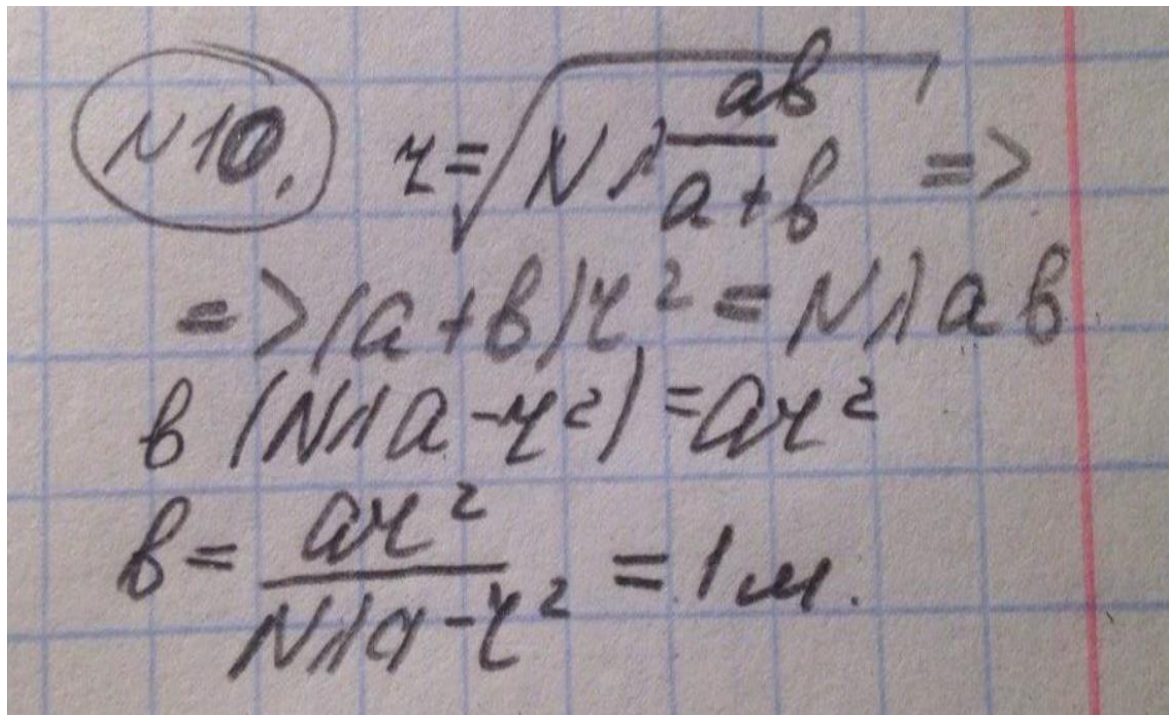 N10. r = √(Nλ ab/(a+b)) =>
=> (a+b)r² = Nλab
b(Nλa - r²) = ar²
b = ar²/(Nλa - r²) = 1м.